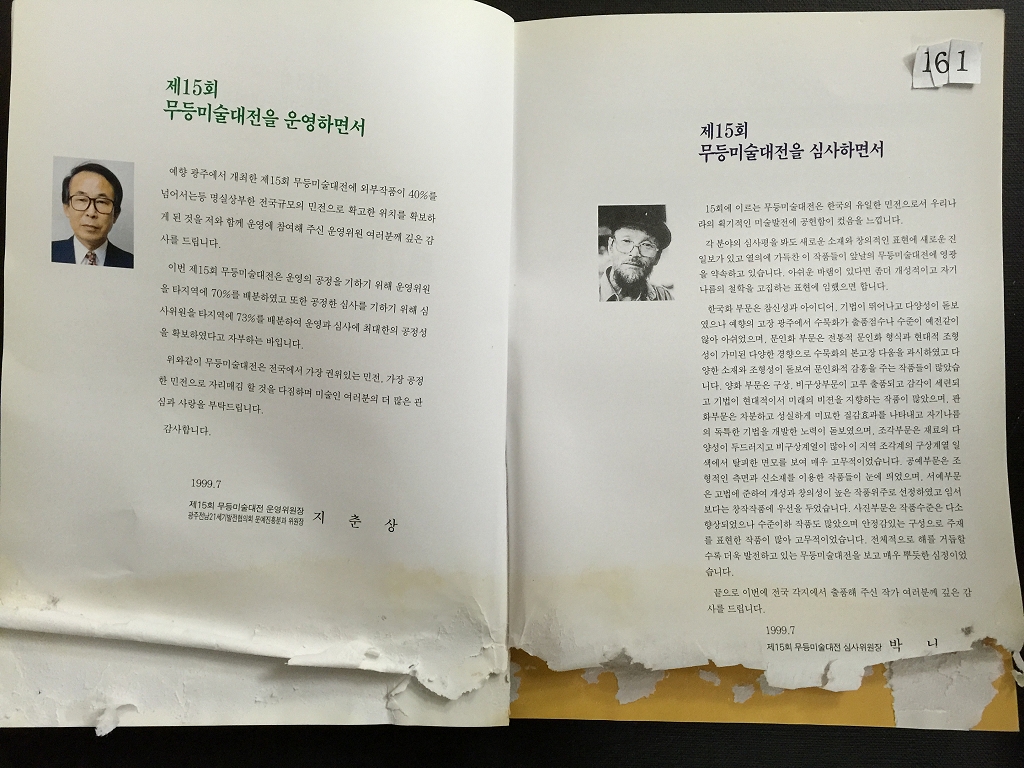 제15회
무등미술대전을 운영하면서
예향 광주에서 개최한 제15회 무등미술대전에 외부작품이 40%를
넘어서는등 명실상부한 전국규모의 민전으로 확고한 위치를 확보하
게 된 것을 저와 함께 운영에 참여해 주신 운영위원 여러분께 깊은 감
사를 드립니다.
이번 제15회 무등미술대전은 운영의 공정을 기하기 위해 운영위원
을 타지역에 70%를 배분하였고 또한 공정한 심사를 기하기 위해 심
사위원을 타지역에 73%를 배분하여 운영과 심사에 최대한의 공정성
을 확보하였다고 자부하는 바입니다.
위와같이 무등미술대전은 전국에서 가장 권위있는 민전, 가장 공정
한 민전으로 자리매김 할 것을 다짐하며 미술인 여러분의 더 많은 관
심과 사랑을 부탁드립니다.
감사합니다.
1999.7
제15회 무등미술대전 운영위원장
광주전남21세기발전협의회 문예진흥분과 위원장
지 춘 상
161
제15회
무등미술대전을 심사하면서
15회에 이르는 무등미술대전은 한국의 유일한 민전으로서 우리나
라의 획기적인 미술발전에 공헌함이 컸음을 느낍니다.
각 분야의 심사평을 봐도 새로운 소재와 창의적인 표현에 새로운 진
일보가 있고 열의에 가득찬 이 작품들이 앞날의 무등미술대전에 영광
을 약속하고 있습니다. 아쉬운 바램이 있다면 좀더 개성적이고 자기
나름의 철학을 고집하는 표현에 임했으면 합니다.
한국화 부문은 참신성과 아이디어, 기법이 뛰어나고 다양성이 돋보
였으나 예향의 고장 광주에서 수묵화가 출품점수나 수준이 예전같이
않아 아쉬었으며, 문인화 부문은 전통적 문인화 형식과 현대적 조형
성이 가미된 다양한 경향으로 수묵화의 본고장 다움을 과시하였고 다
양한 소재와 조형성이 돋보여 문인화적 감흥을 주는 작품들이 많았습
니다. 양화 부문은 구상, 비구상부문이 고루 출품되고 감각이 세련되
고 기법이 현대적이서 미래의 비젼을 지향하는 작품이 많았으며, 판
화부문은 차분하고 성실하게 미묘한 질감효과를 나타내고 자기나름
의 독특한 기법을 개발한 노력이 돋보였으며, 조각부문은 재료의 다
양성이 두드러지고 비구상계열이 많아 이 지역 조각계의 구상계열 일
색에서 탈피한 면모를 보여 매우 고무적이었습니다. 공예부문은 조
형적인 측면과 신소재를 이용한 작품들이 눈에 띄었으며, 서예부문
은 고법에 준하여 개성과 창의성이 높은 작품위주로 선정하였고 임서
보다는 창작작품에 우선을 두었습니다. 사진부문은 작품수준은 다소
향상되었으나 수준이하 작품도 많았으며 안정감있는 구성으로 주제
를 표현한 작품이 많아 고무적이었습니다. 전체적으로 해를 거듭할
수록 더욱 발전하고 있는 무등미술대전을 보고 매우 뿌듯한 심정이었
습니다.
끝으로 이번에 전국 각지에서 출품해 주신 작가 여러분께 깊은 감
사를 드립니다.
1999.7
제15회 무등미술대전 심사위원장 박